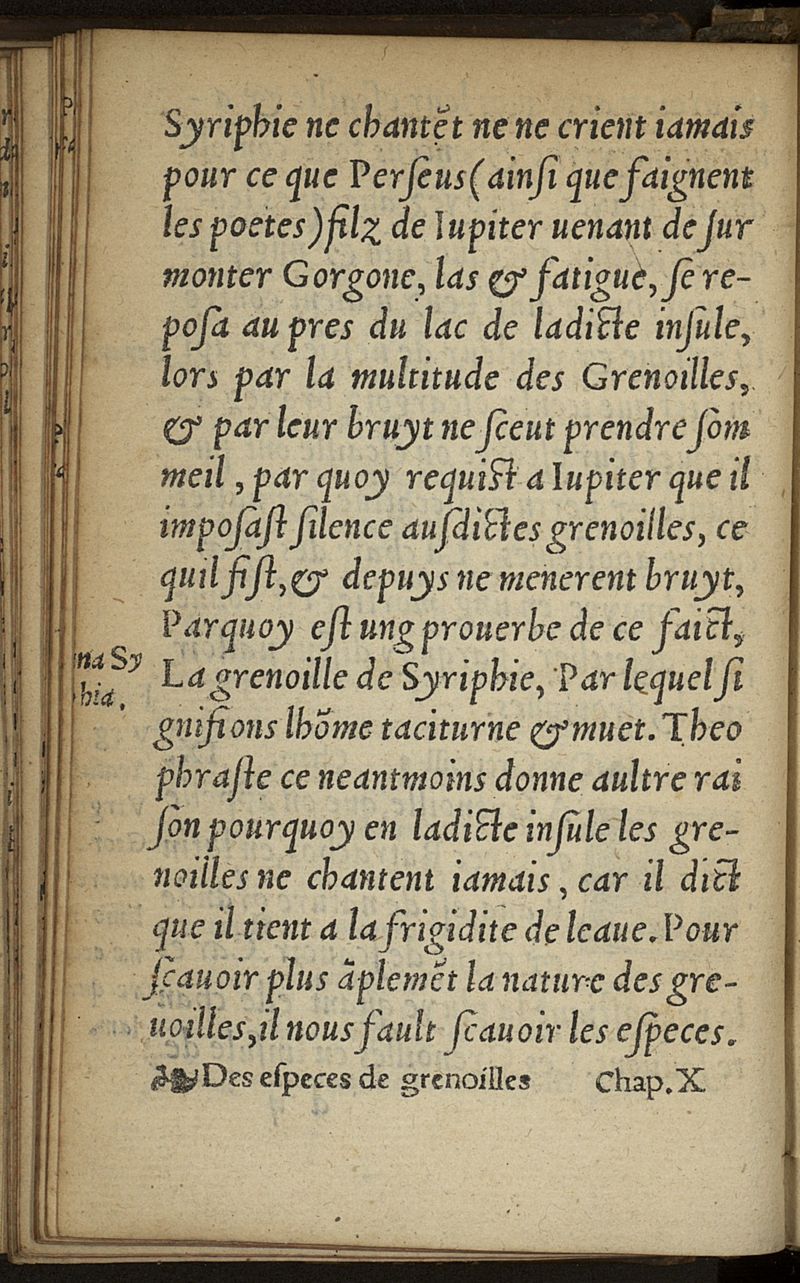 Syriphie ne chantẽt ne ne crient iamais
pour ce que Perſeus (ainſi que faignent
les poetes) filz de Iupiter uenant de ſur
monter Gorgone, las & fatigue, ſe re-
poſa au pres du lac de ladicte inſule,
lors par la multitude des Grenoilles,
& par leur bruyt ne ſceut prendre ſom
meil, par quoy requiſt a Iupiter que il
impoſaſt ſilence auſdictes grenoilles, ce
quil fiſt, & depuys ne menerent bruyt,
Parquoy eſt ung prouerbe de ce faict,
na Sy
La grenoille de Syriphie, Par lequel ſi
hia.
gnifions lhõme taciturne & muet. Theo
phraſte ce neantmoins donne aultre rai
ſon pourquoy en ladicte inſule les gre-
noilles ne chantent iamais, car il dict
que il tient a la frigidite de leaue. Pour
ſcauoir plus ãplemẽt la nature des gre-
uoilles, il nous fault ſcauoir les eſpeces.
Des eſpeces de grenoilles Chap. X